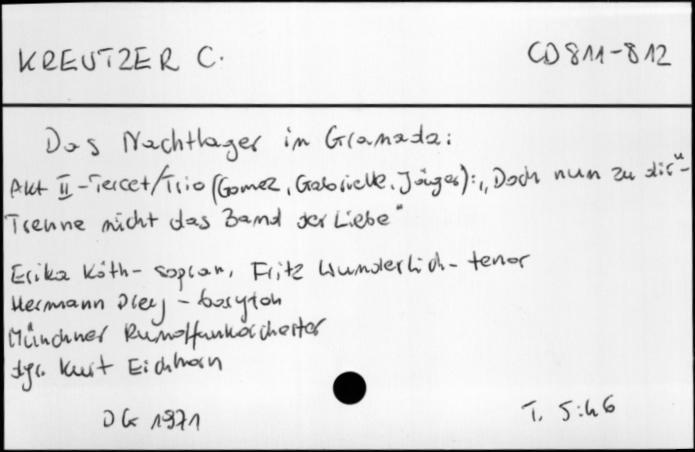 KREUTZER C.
CD 811-812
Das Nachtlager in Granada:
Akt II - Tercet/Trio (Gomez, Gabrielle, Jäger): „Doch nun zu dir"-
Trenne nicht das Band der Liebe"
Erika Köth - sopran, Fritz Wunderlich - tenor
Hermann Prey - baryton
Münchner Rundfunkorchester
dyr. Kurt Eichhorn
DG 1971
T. 5:46